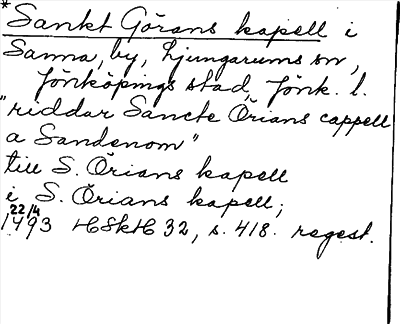 *Sankt Görans kapell i
Sanna, by, Ljungarums sn,
Jönköpings stad, Jönk. l.
"riddar Sancte Örians cappell
a Sandenom"
till S. Örians kapell
i S. Örians kapell;
22/4
1493 HSkH 32, s. 418. regest.